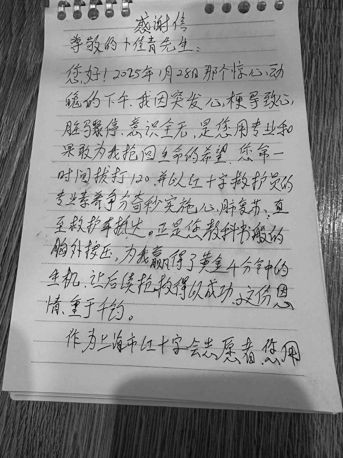 感谢信
尊敬的卜佳青先生:
您好!2025年1月28日那个惊心动
魄的下午,我因突发心梗导致心
脏骤停、意识全无,是您用专业和
果敢为我抢回生命的希望。您第一
时间拨打120,并以红十字救护员的
专业素养争分夺秒实施心肺复苏,直
至救护车抵达。正是您教科书般的
胸外按压,为我赢得了黄金4分钟的
生机,让后续抢救得以成功。这份恩
情,重于千钧。
作为上海市红十字会志愿者,您用